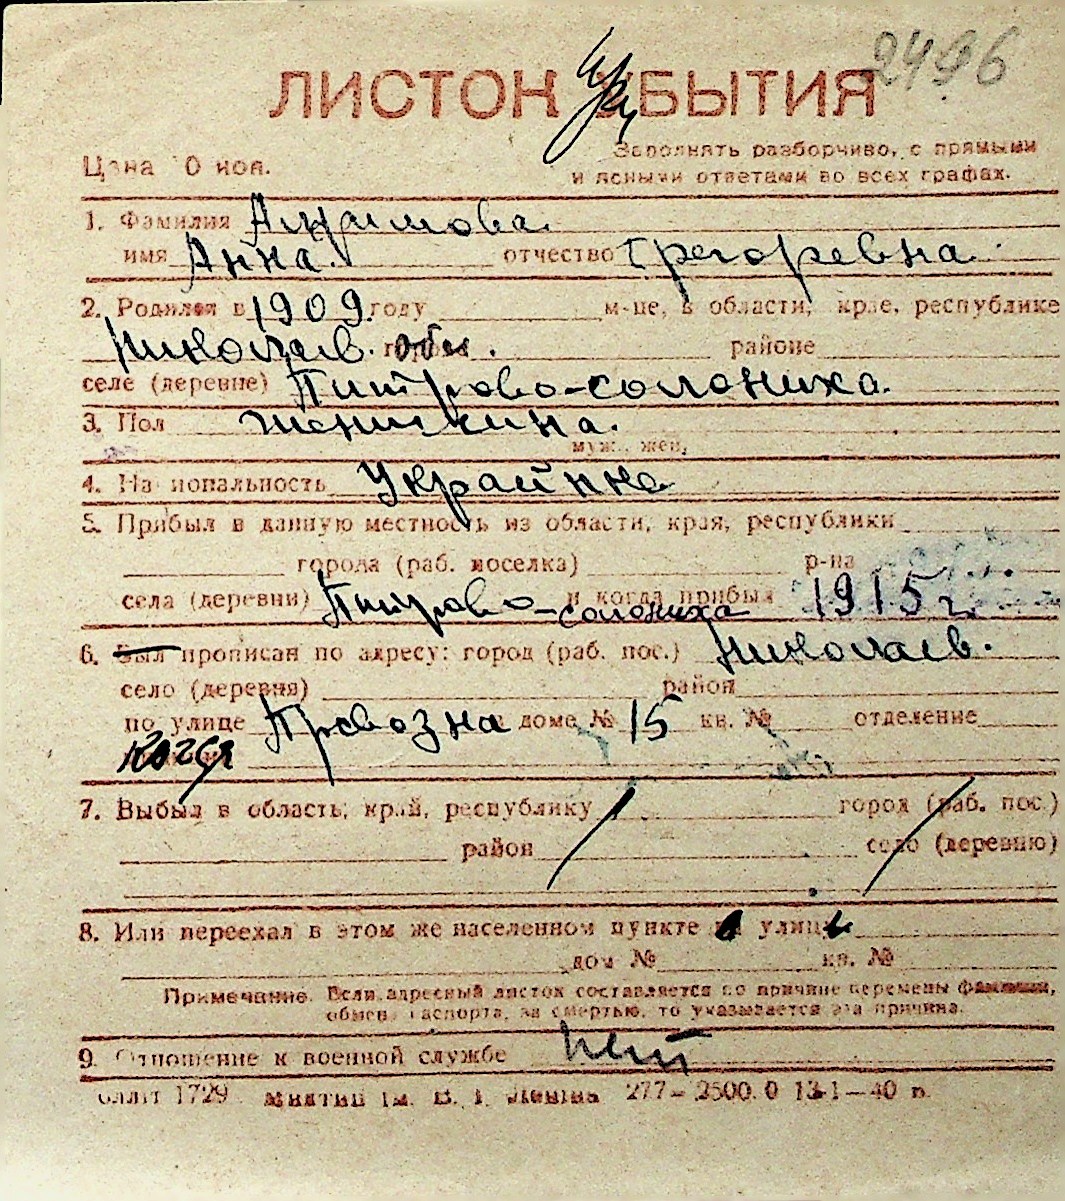 2496
ЛИСТОК УБЫТИЯ
Цена 10 коп.
Заполнять разборчиво, с прямыми
и ясными ответами во всех графах.
1. Фамилия
имя Анна. отчество Грегоревна.
2. Родился в 1909 году м-це, в области, крае, республике
Николаев. обл. города районе
селе (деревне) Питрово-солониха.
3. Пол женичина.
муж., жен,
4. Национальность Украйнка
5. Прибыл в данную местность из области, края, республики
города (раб. поселка) р-на
села (деревни) Питрово-солониха и когда прибыл 1915 г.
6. Был прописан по адресу: город (раб. пос.) Николаев.
село (деревня) район
по улице Привозна дом № 15 кв. № отделение
милиции
7. Выбыл в область, край, республику город (раб. пос.)
район село (деревню)
8. Или переехал в этом же населенном пункте на улицу
дом № кв. №
Примечание. Если адресный листок составляется по причине перемены фамилии,
обмена паспорта, за смертью, то указывается эта причина.
9. Отношение к военной службе нет
1729 277— 2500.0 13-1—40 р.